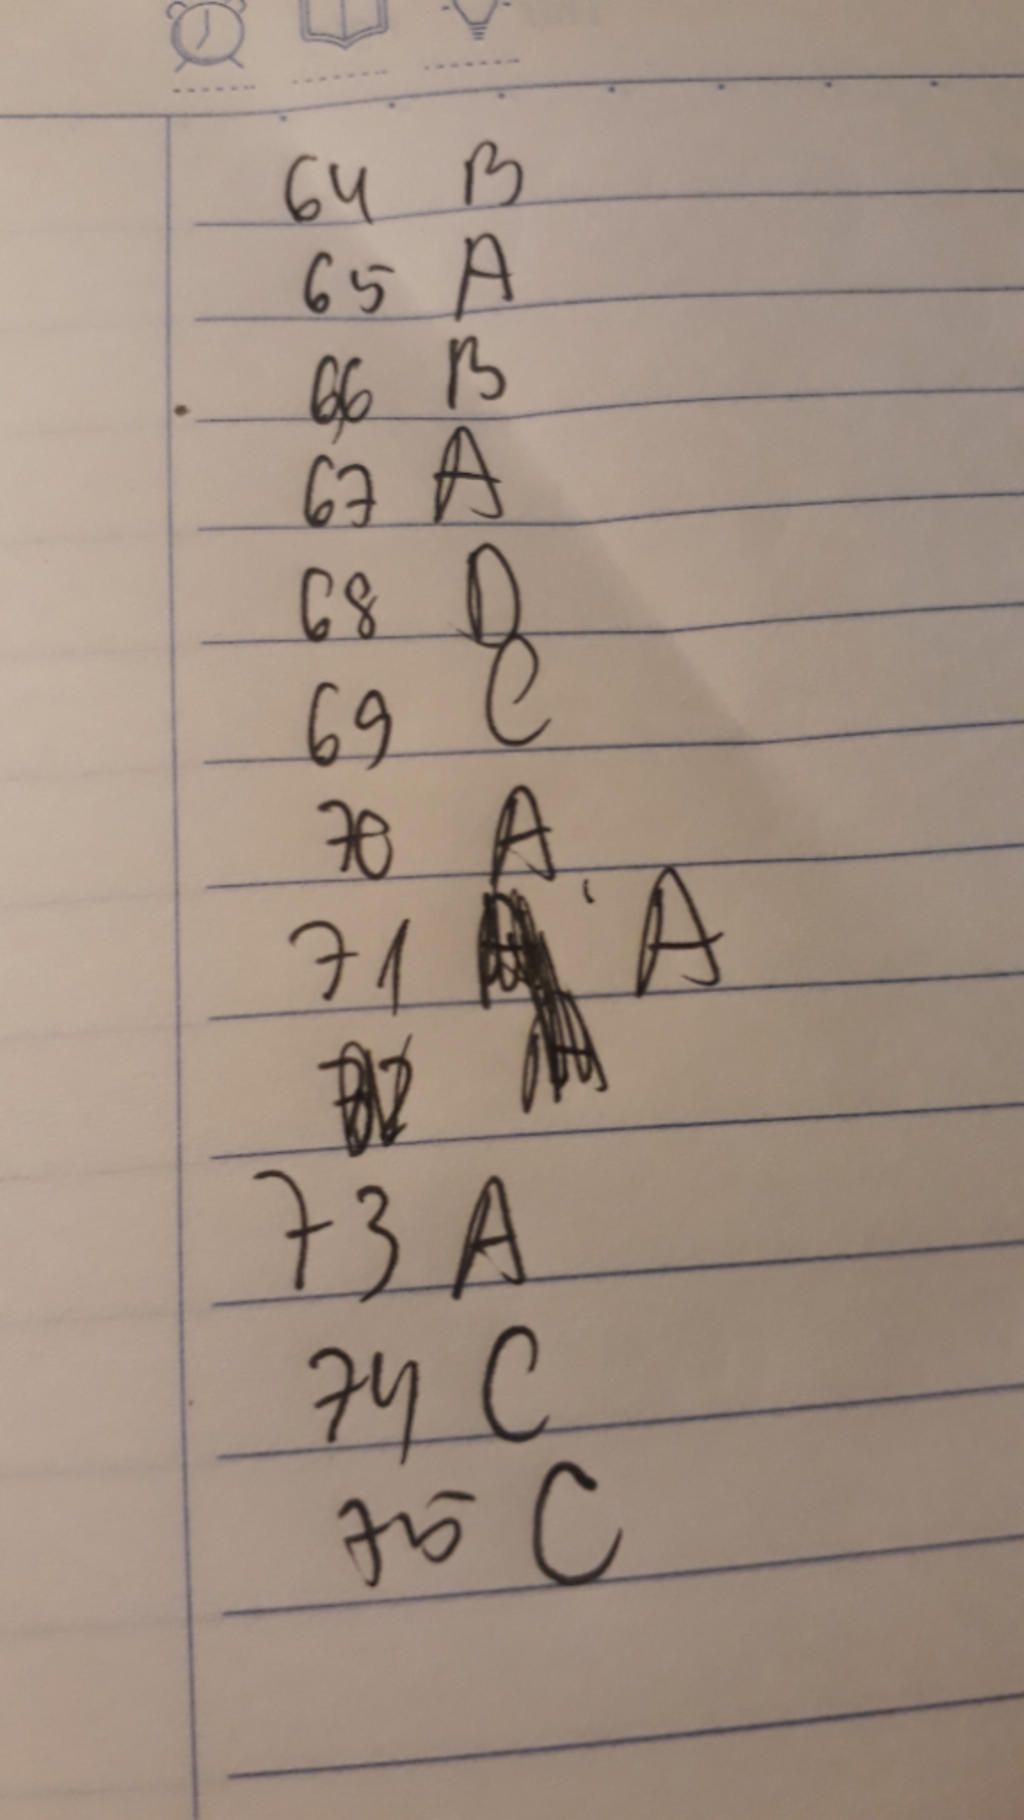 64 B
65 A
66 B
67 A
68 D
69 C
70 A
71 A
73 A
74 C
75 C